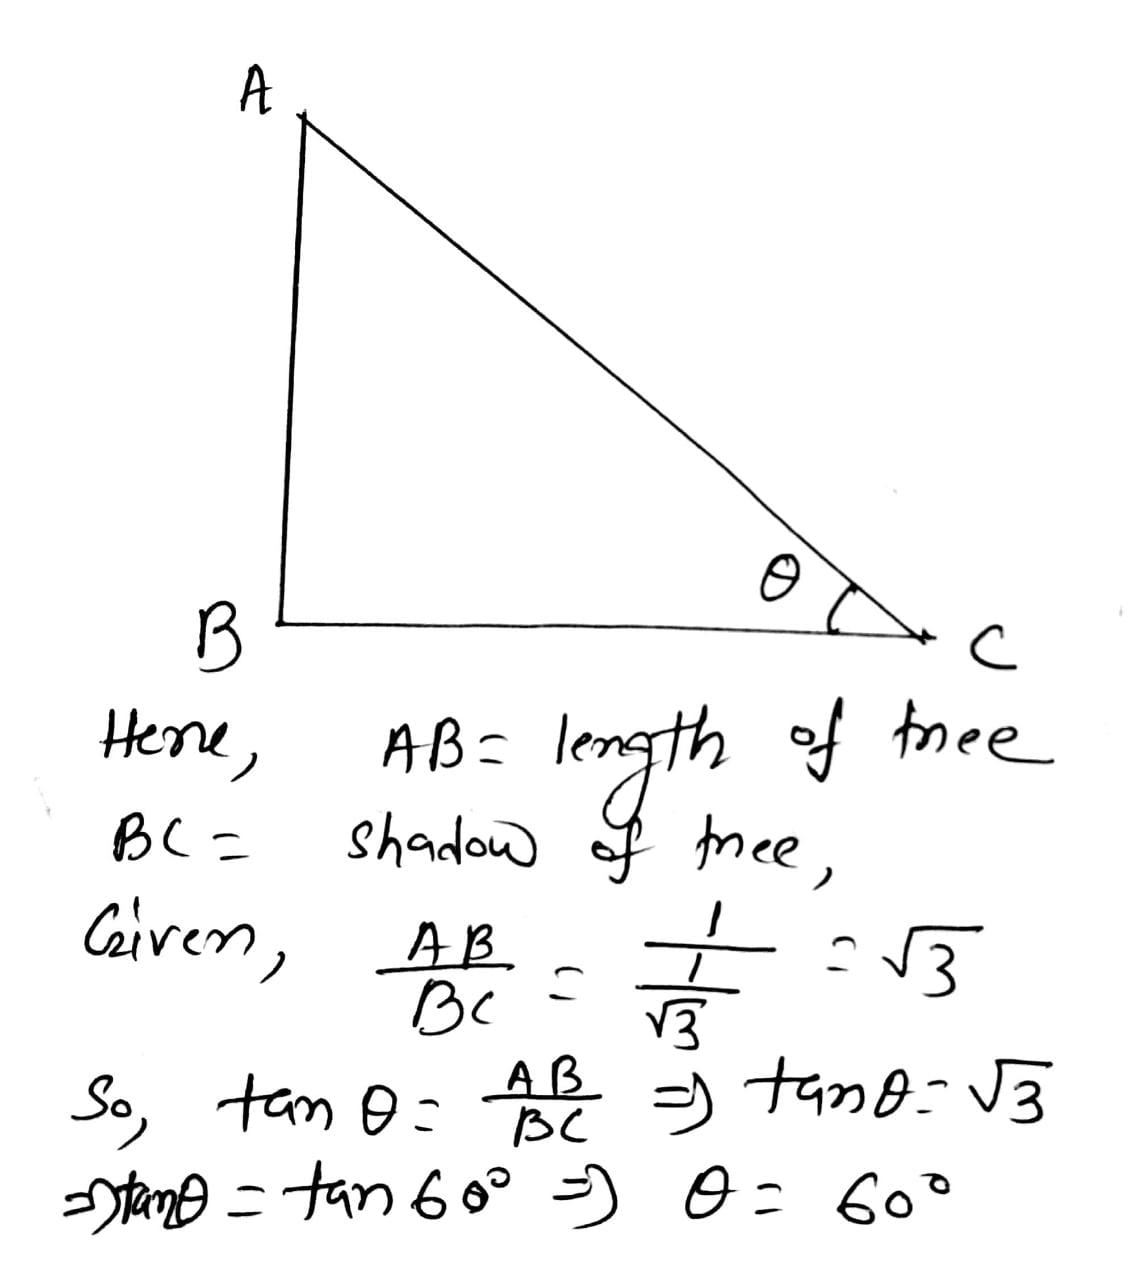 A
θ
B
C
Here, AB = length of tree
BC = shadow of tree,
Given, AB/BC = 1/(1/√3) = √3
So, tan θ = AB/BC ⇒ tanθ = √3
⇒ tanθ = tan 60° ⇒ θ = 60°